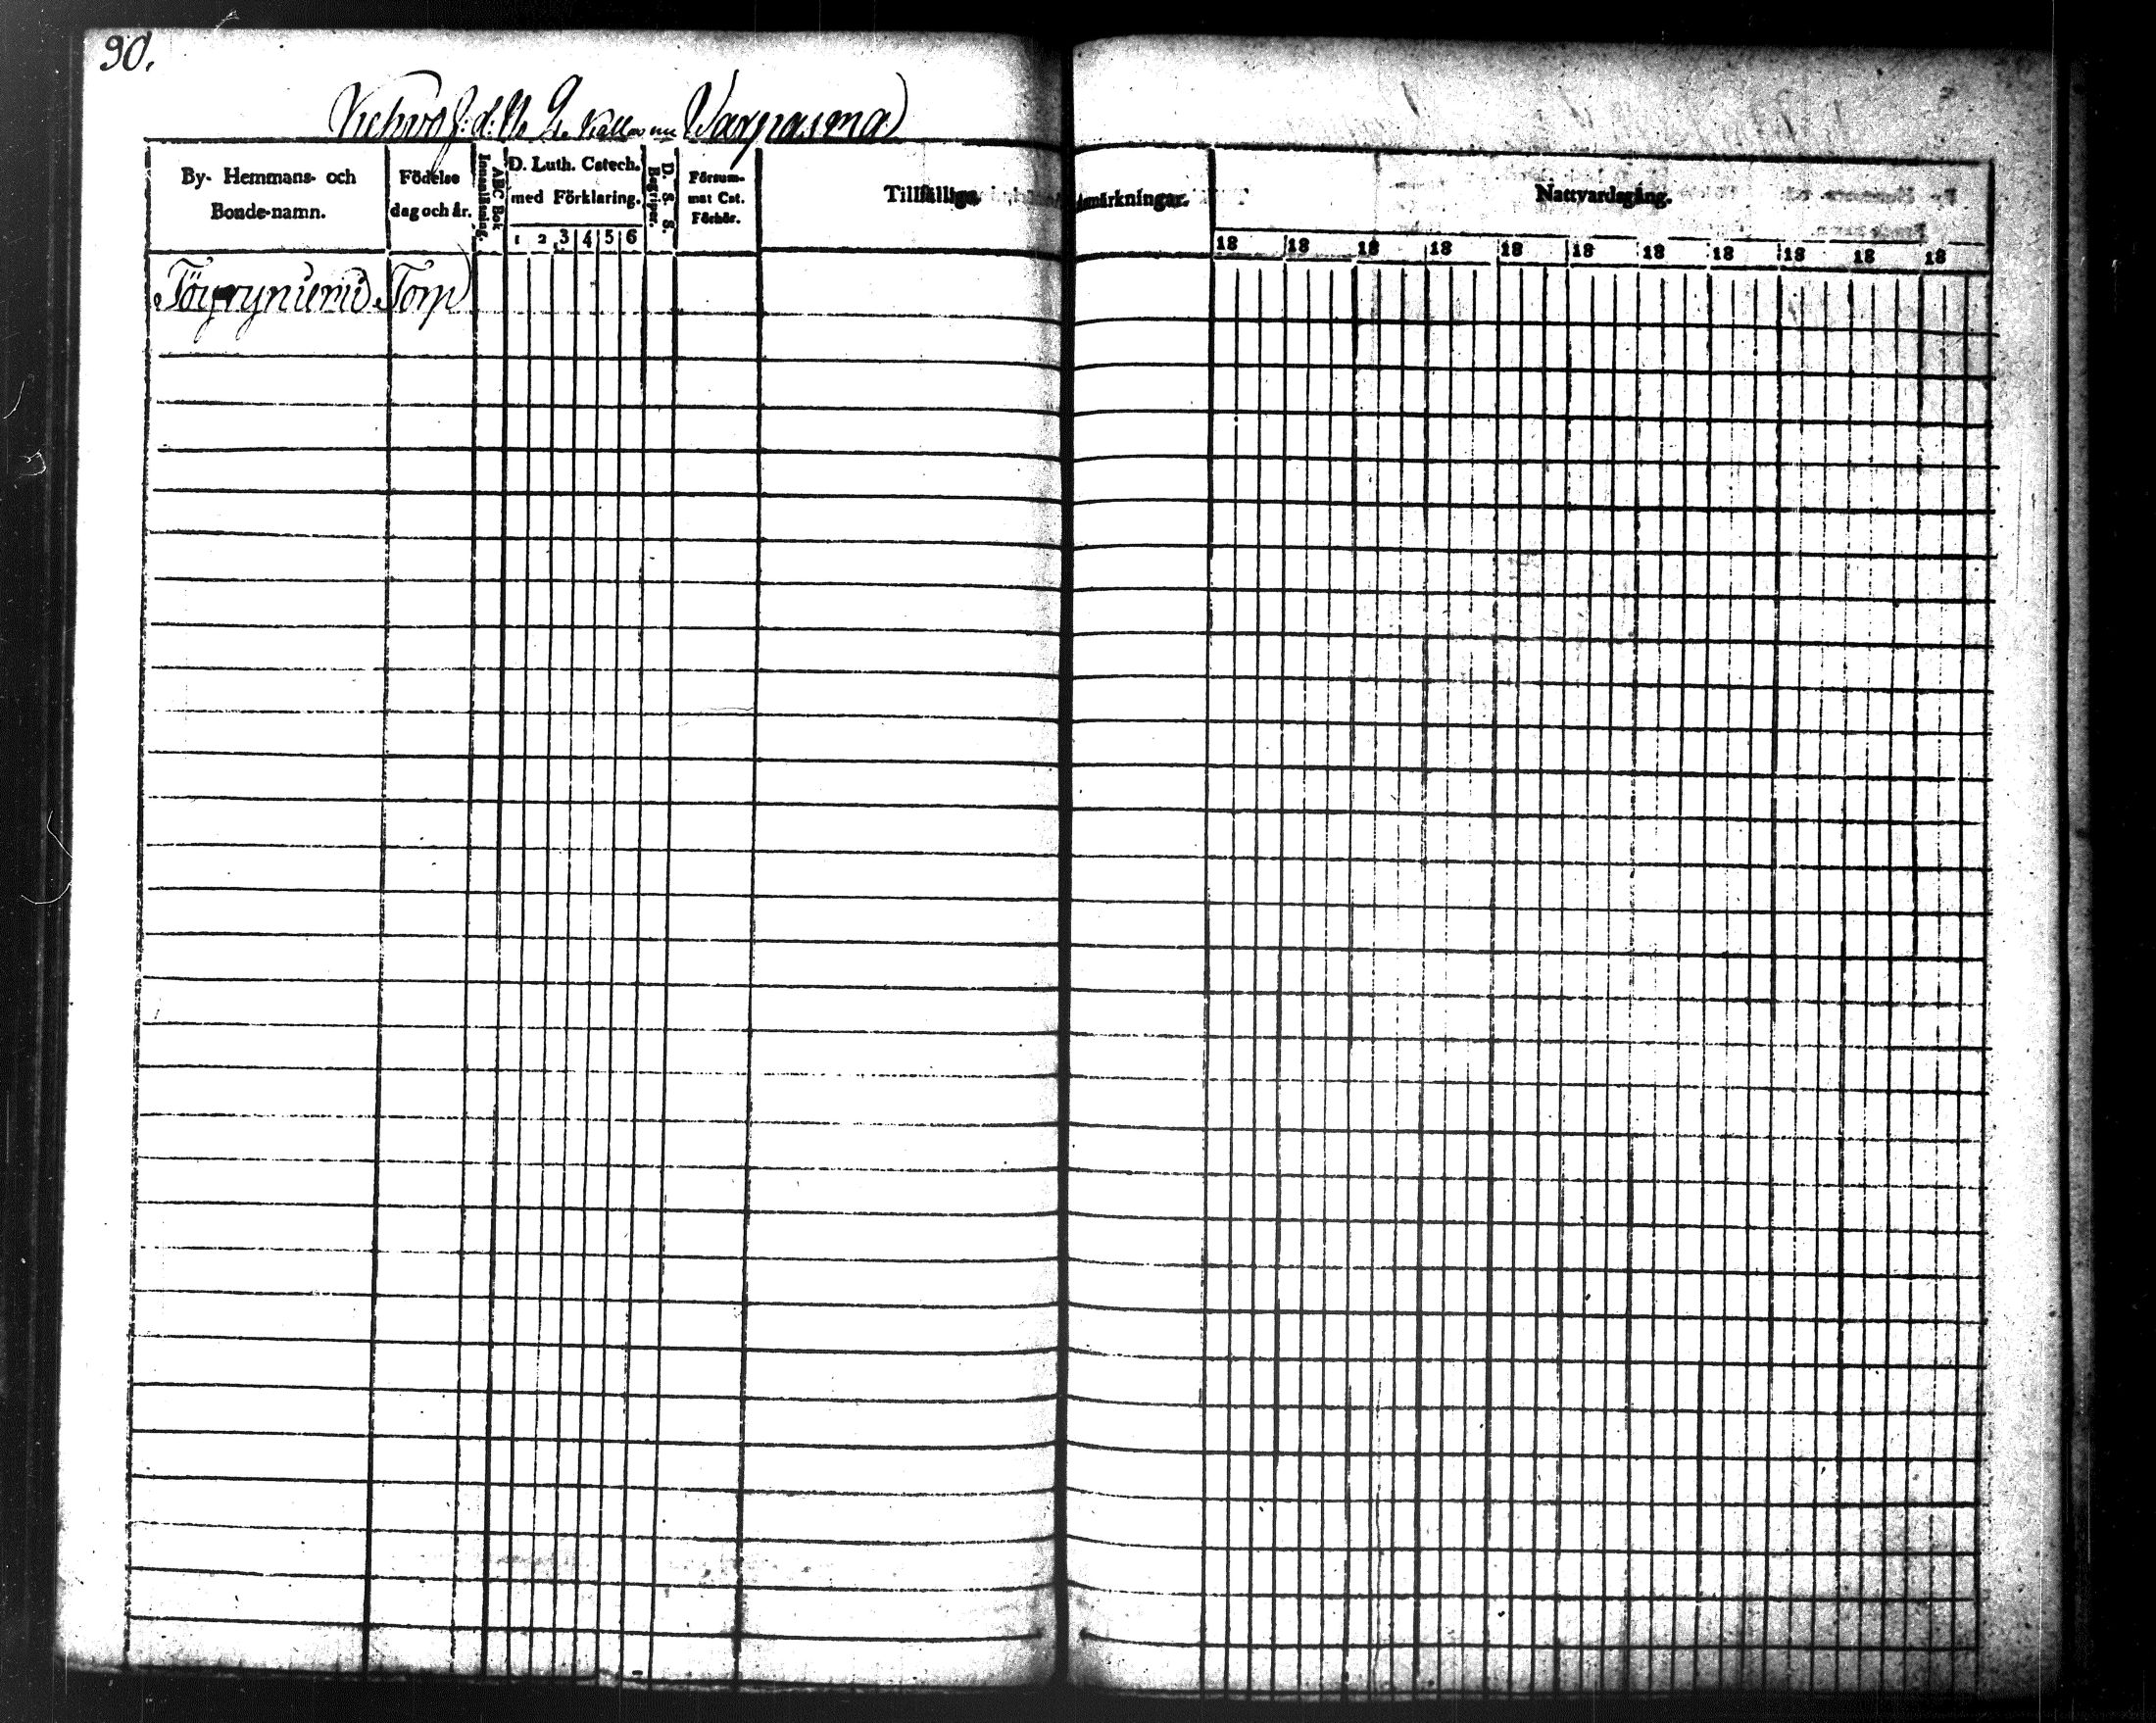 90.
Warpasma
By- Hemmans- och
Bonde-namn.
Födelse
dag och år.
Innanläsning.
ABC Bok
D. Luth. Catech.
med Förklaring.
1 2 3 4 5 6
Begriper.
D. S. S.
Försum-
mat Cat.
Förhör.
Tillfällige Anmärkningar.
Nattvardsgång.
18 18 18 18 18 18 18 18 18 18 18
Torp